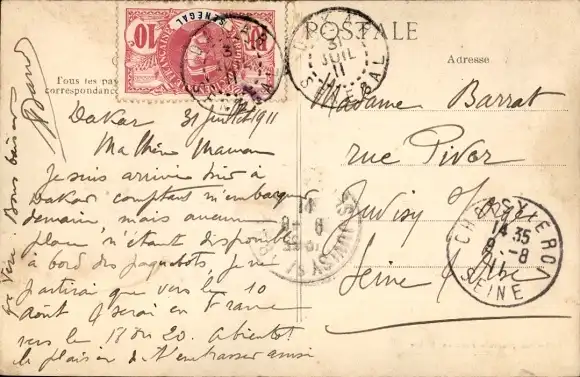 POSTALE
Adresse
Tous les pay
correspondanc
10
SÉNÉGAL
DAKAR
31
JUIL
11
SÉNÉGAL
Dakar 31 Juillet 1911
Ma Chère Maman
Je suis arrivé hier à
Dakar comptant m'embarquer
demain mais aucune
place n'étant disponible
à bord des paquebots, je ne
partirai que vers le 10
août & serai en France
vers le 18 ou 20. à bientôt
le plaisir de t'embrasser aussi
Bons baisers
Madame Barrat
rue Piver
Juvisy s/ Orge
Seine & Oise
JUVISY S
CHOISY LE ROI
14 35
8 -8
11
SEINE